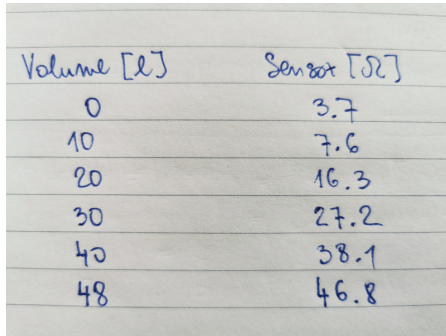 Volume [l] Sensor [Ω]
0 3.7
10 7.6
20 16.3
30 27.2
40 38.1
48 46.8